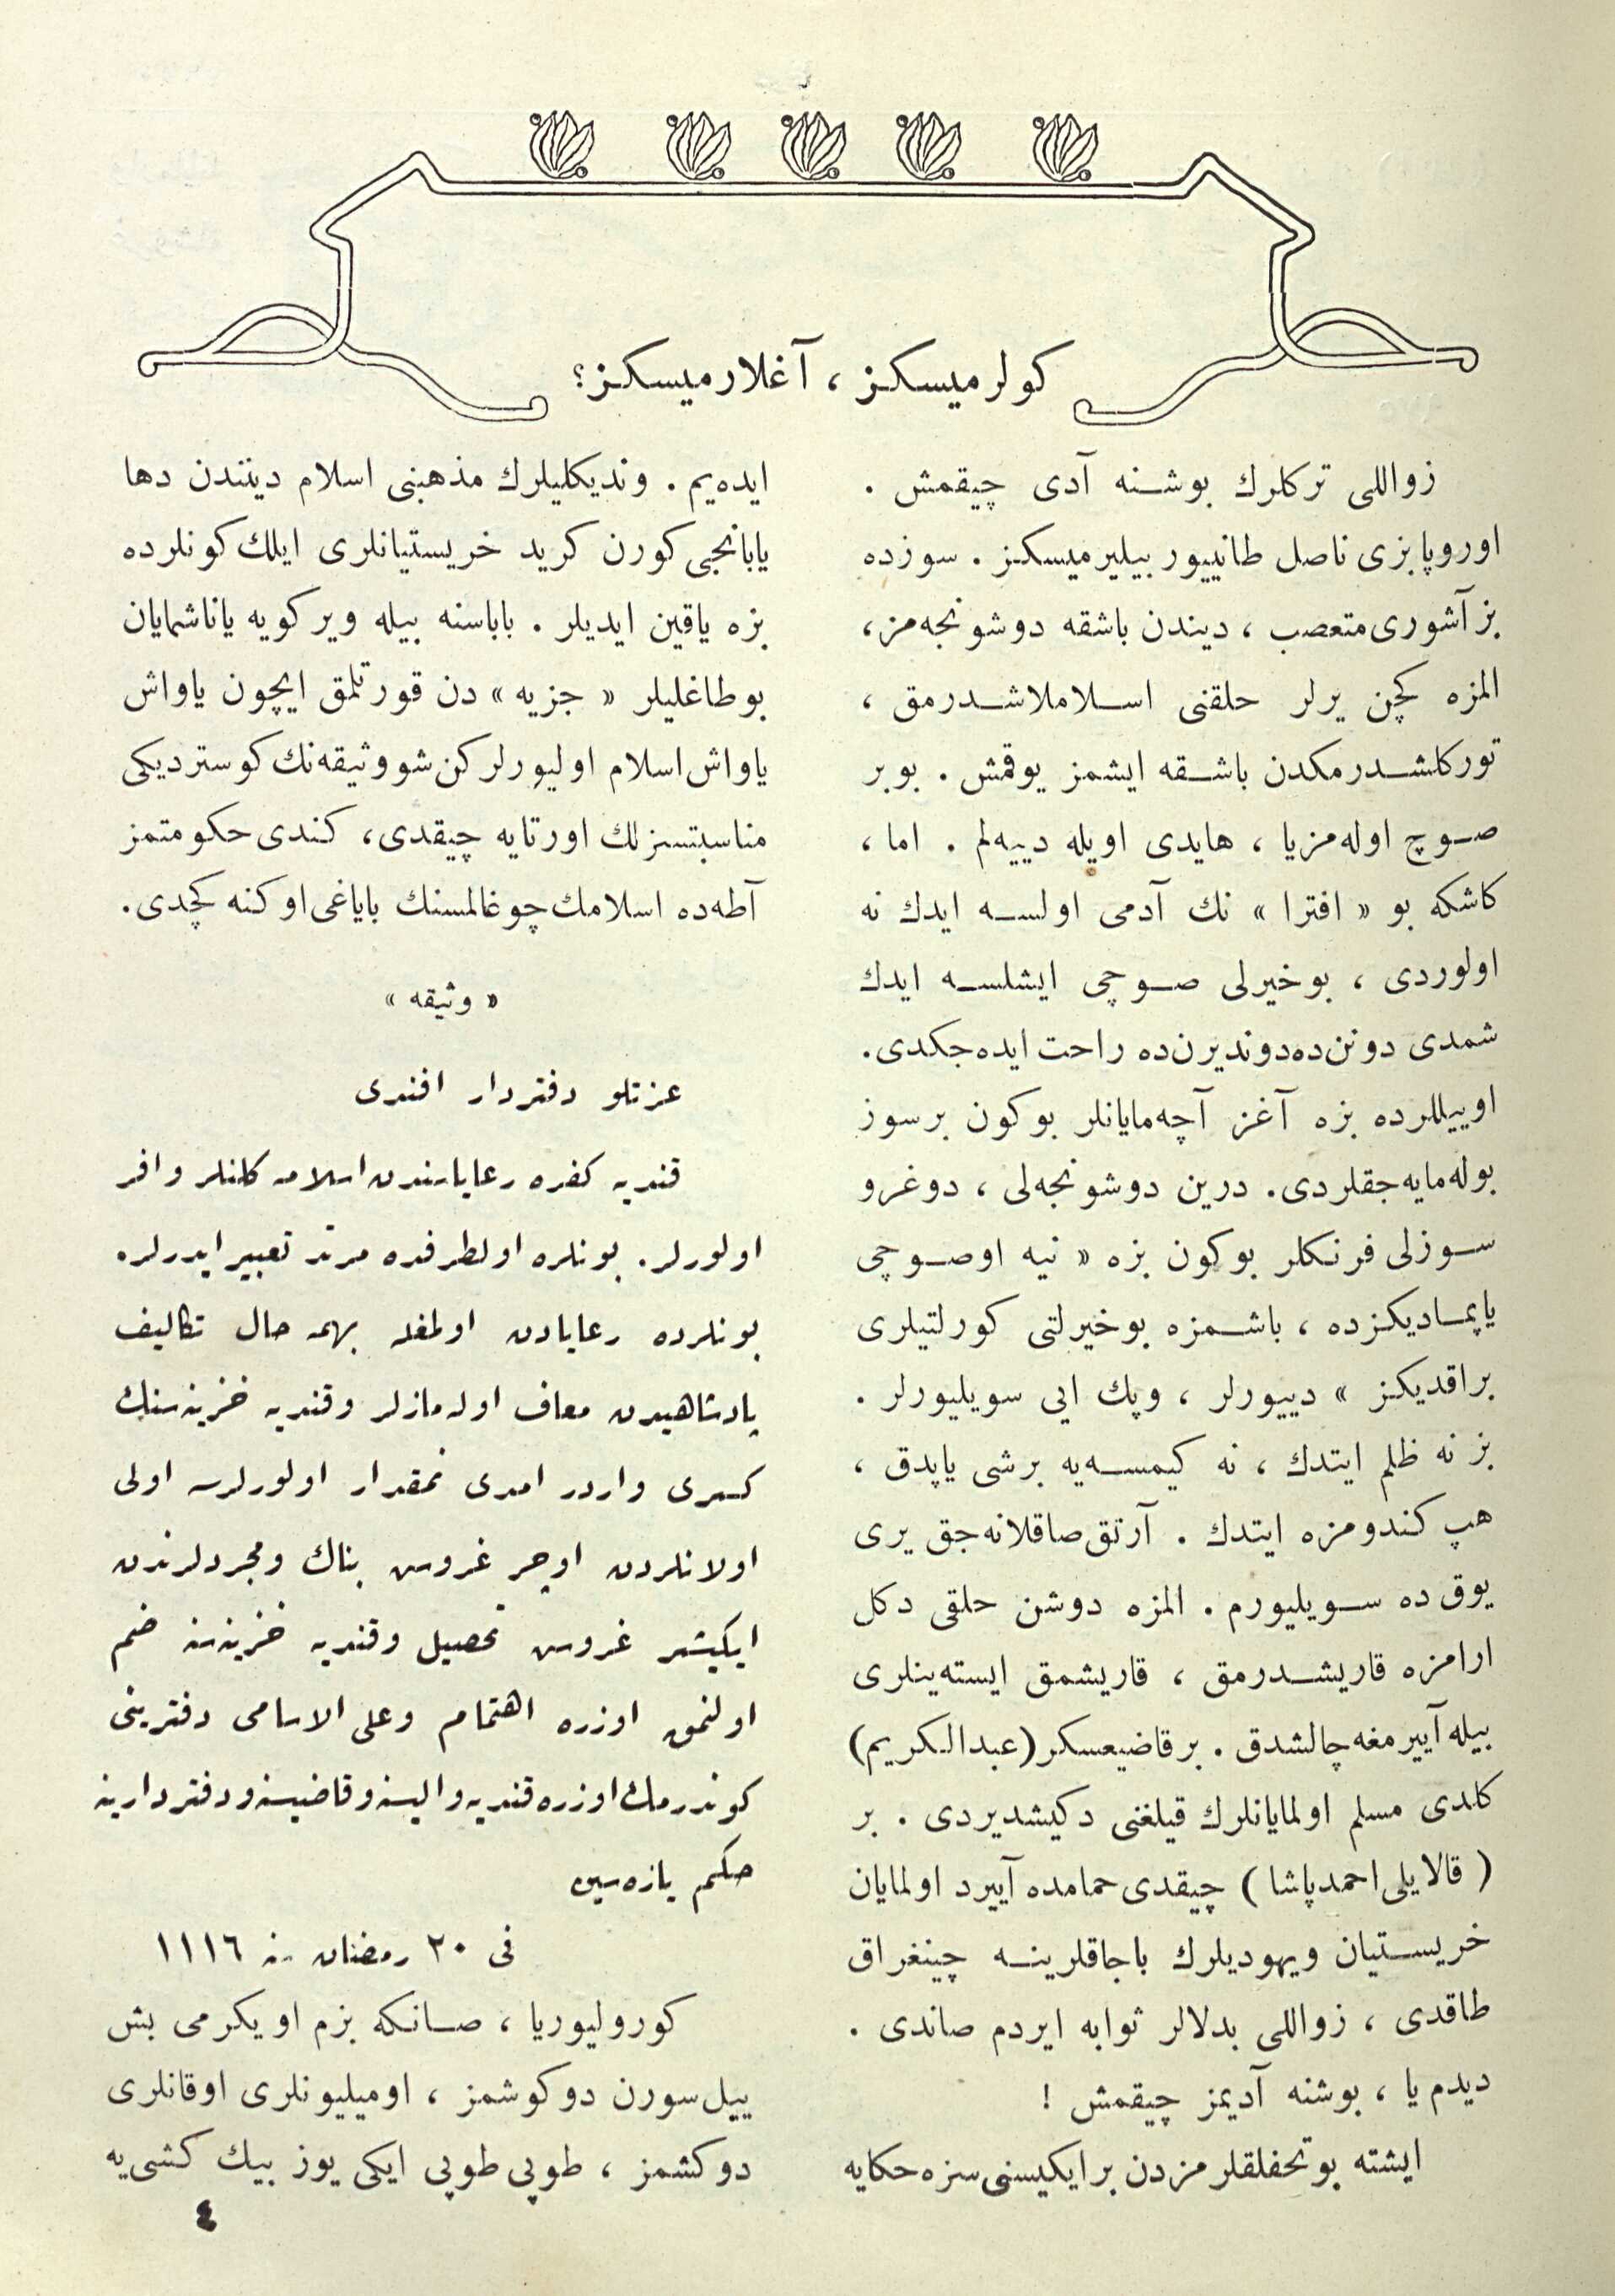 كولرميسكز ، آغلارميسكز؟
زواللى تركلرك بوشنه آدى چيقمش .
اوروپا بزى ناصل طانييور بيليرميسكز . سوزده
بز آشورى متعصب ، ديندن باشقه دوشونجه‌مز،
المزه كچن يرلر حلقنى اسلاملاشدرمق ،
توركلشدرمكدن باشقه ايشمز يوقمش . بو بر
صوچ اوله‌مزيا ، هايدى اويله دييه‌لم . اما ،
كاشكه بو « افترا » نك آدمى اولسه ايدك نه
اولوردى ، بوخيرلى صوچى ايشلسه ايدك
شمدى دونن‌ده‌دونديرن‌ده راحت ايده‌جكدى.
اوييللرده بزه آغز آچه‌مايانلر بوكون برسوز
بوله‌مايه‌جقلردى. درين دوشونجه‌لى ، دوغرو
سوزلى فرنكلر بوكون بزه « نيه اوصوچى
ياپماديكزده ، باشمزه بوخيرلتى كورلتيلرى
براقديكز » دييورلر ، وپك ايى سويليورلر .
بز نه ظلم ايتدك ، نه كيمسه‌يه برشى ياپدق ،
هپ كندومزه ايتدك . آرتق صاقلانه‌جق يرى
يوق ده سويليورم . المزه دوشن حلقى دكل
ارامزه قاريشدرمق ، قاريشمق ايسته‌ينلرى
بيله آييرمغه چالشدق . برقاضيعسكر (عبدالكريم)
كلدى مسلم اولمايانلرك قيلغنى دكيشديردى . بر
( قالايلى احمدپاشا ) چيقدى حمامده آييرد اولمايان
خريستيان ويهوديلرك باجاقلرينه چينغراق
طاقدى ، زواللى بدلالر ثوابه ايردم صاندى .
ديدم يا ، بوشنه آديمز چيقمش !
ايشته بوتحفلقلرمزدن برايكيسنى سزه حكايه
ايده‌يم . ونديكليلرك مذهبنى اسلام ديننندن دها
يابانجى كورن كريد خريستيانلرى ايلك كونلرده
بزه ياقين ايديلر . باباسنه بيله ويركويه ياناشمايان
بوطاغليلر « جزيه » دن قورتلمق ايچون ياواش
ياواش اسلام اوليورلركن شو وثيقه‌نك كوسترديكى
مناسبتسزلك اورتايه چيقدى، كندى حكومتمز
آطه‌ده اسلامك چوغالمسنك باياغى اوكنه كچدى.
« وثيقه »
عزتلو دفتردار افندى
قنديه كفره رعاياسندن اسلامه كلنلر وافر
اولورلر. بونلره اولطرفده مرتد تعبير ايدرلر.
بونلرده رعايادن اولمغله بهمه حال تكاليف
پادشاهيدن معاف اوله‌مازلر وقنديه خزينه‌سنك
كسرى واردر امدى نمقدار اولورلرسه اولى
اولانلردن اوچر غروس بناك ومجردلرندن
ايكيشر غروس تحصيل وقنديه خزينه‌سنه ضم
اولنمق اوزره اهتمام وعلى الاسامى دفترينى
كوندرمك اوزره قنديه واليسنه وقاضيسنه ودفتردارينه
حكم يازه‌سين
فى ٢٠ رمضان سنه ١١١٦
كورولیوريا ، صانكه بزم اويكرمى بش
ييل سورن دوكوشمز ، اوميليونلرى اوقانلرى
دوكشمز ، طوپى طوپى ايكى يوز بيك كشى‌يه
٤